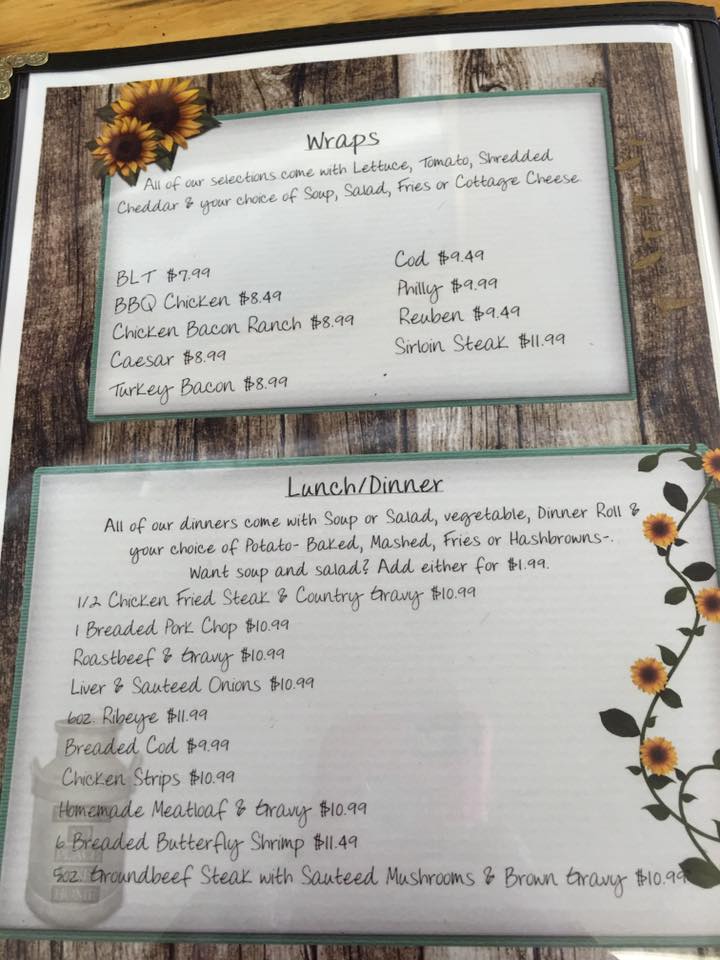 Wraps
All of our selections come with Lettuce, Tomato, Shredded
Cheddar & your choice of Soup, Salad, Fries or Cottage Cheese.
BLT $7.99
BBQ Chicken $8.49
Chicken Bacon Ranch $8.99
Caesar $8.99
Turkey Bacon $8.99
Cod $9.49
Philly $9.99
Reuben $9.49
Sirloin Steak $11.99
Lunch/Dinner
All of our dinners come with Soup or Salad, vegetable, Dinner Roll &
your choice of Potato- Baked, Mashed, Fries or Hashbrowns-.
Want soup and salad? Add either for $1.99.
1/2 Chicken Fried Steak & Country Gravy $10.99
1 Breaded Pork Chop $10.99
Roastbeef & Gravy $10.99
Liver & Sauteed Onions $10.99
6oz. Ribeye $11.99
Breaded Cod $9.99
Chicken Strips $10.99
Homemade Meatloaf & Gravy $10.99
6 Breaded Butterfly Shrimp $11.49
8oz. Groundbeef Steak with Sauteed Mushrooms & Brown Gravy $10.99